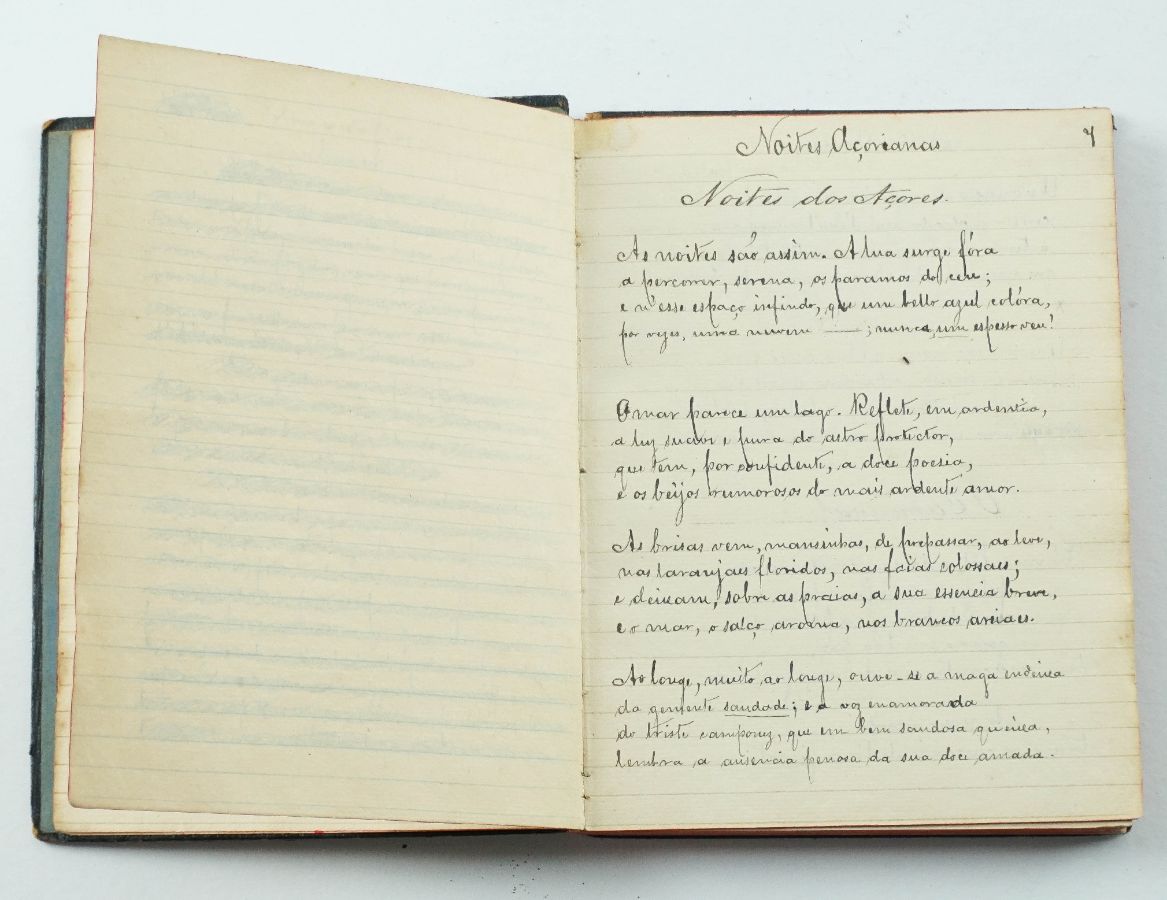 7
Noites Açorianas
Noites dos Açores.
As noites são assim. A lua surge fóra
a percorrer, serena, os paramos do ceu;
e n'esse espaço infindo, que um bello azul colóra,
por vezes, uma nuvem ; nunca, um espesso veu!
O mar parece um lago. Reflete, em ardentia,
a luz suave e pura do astro protector,
que tem, por confidente, a doce poesia,
e os beijos rumorosos do mais ardente amor.
As brisas vem, mansinhas, de prepassar, ao leve,
nas laranjaes floridos, nas faias colossaes;
e deixam, sobre as praias, a sua essencia breve,
e o mar, o salço aroma, nos brancos areiaes.
Ao longe, muito ao longe, ouve-se a maga endeixa
da gemente saudade; e a voz enamorada
do triste camponez, que em bem saudosa queixa,
lembra a ausencia penosa da sua doce amada.